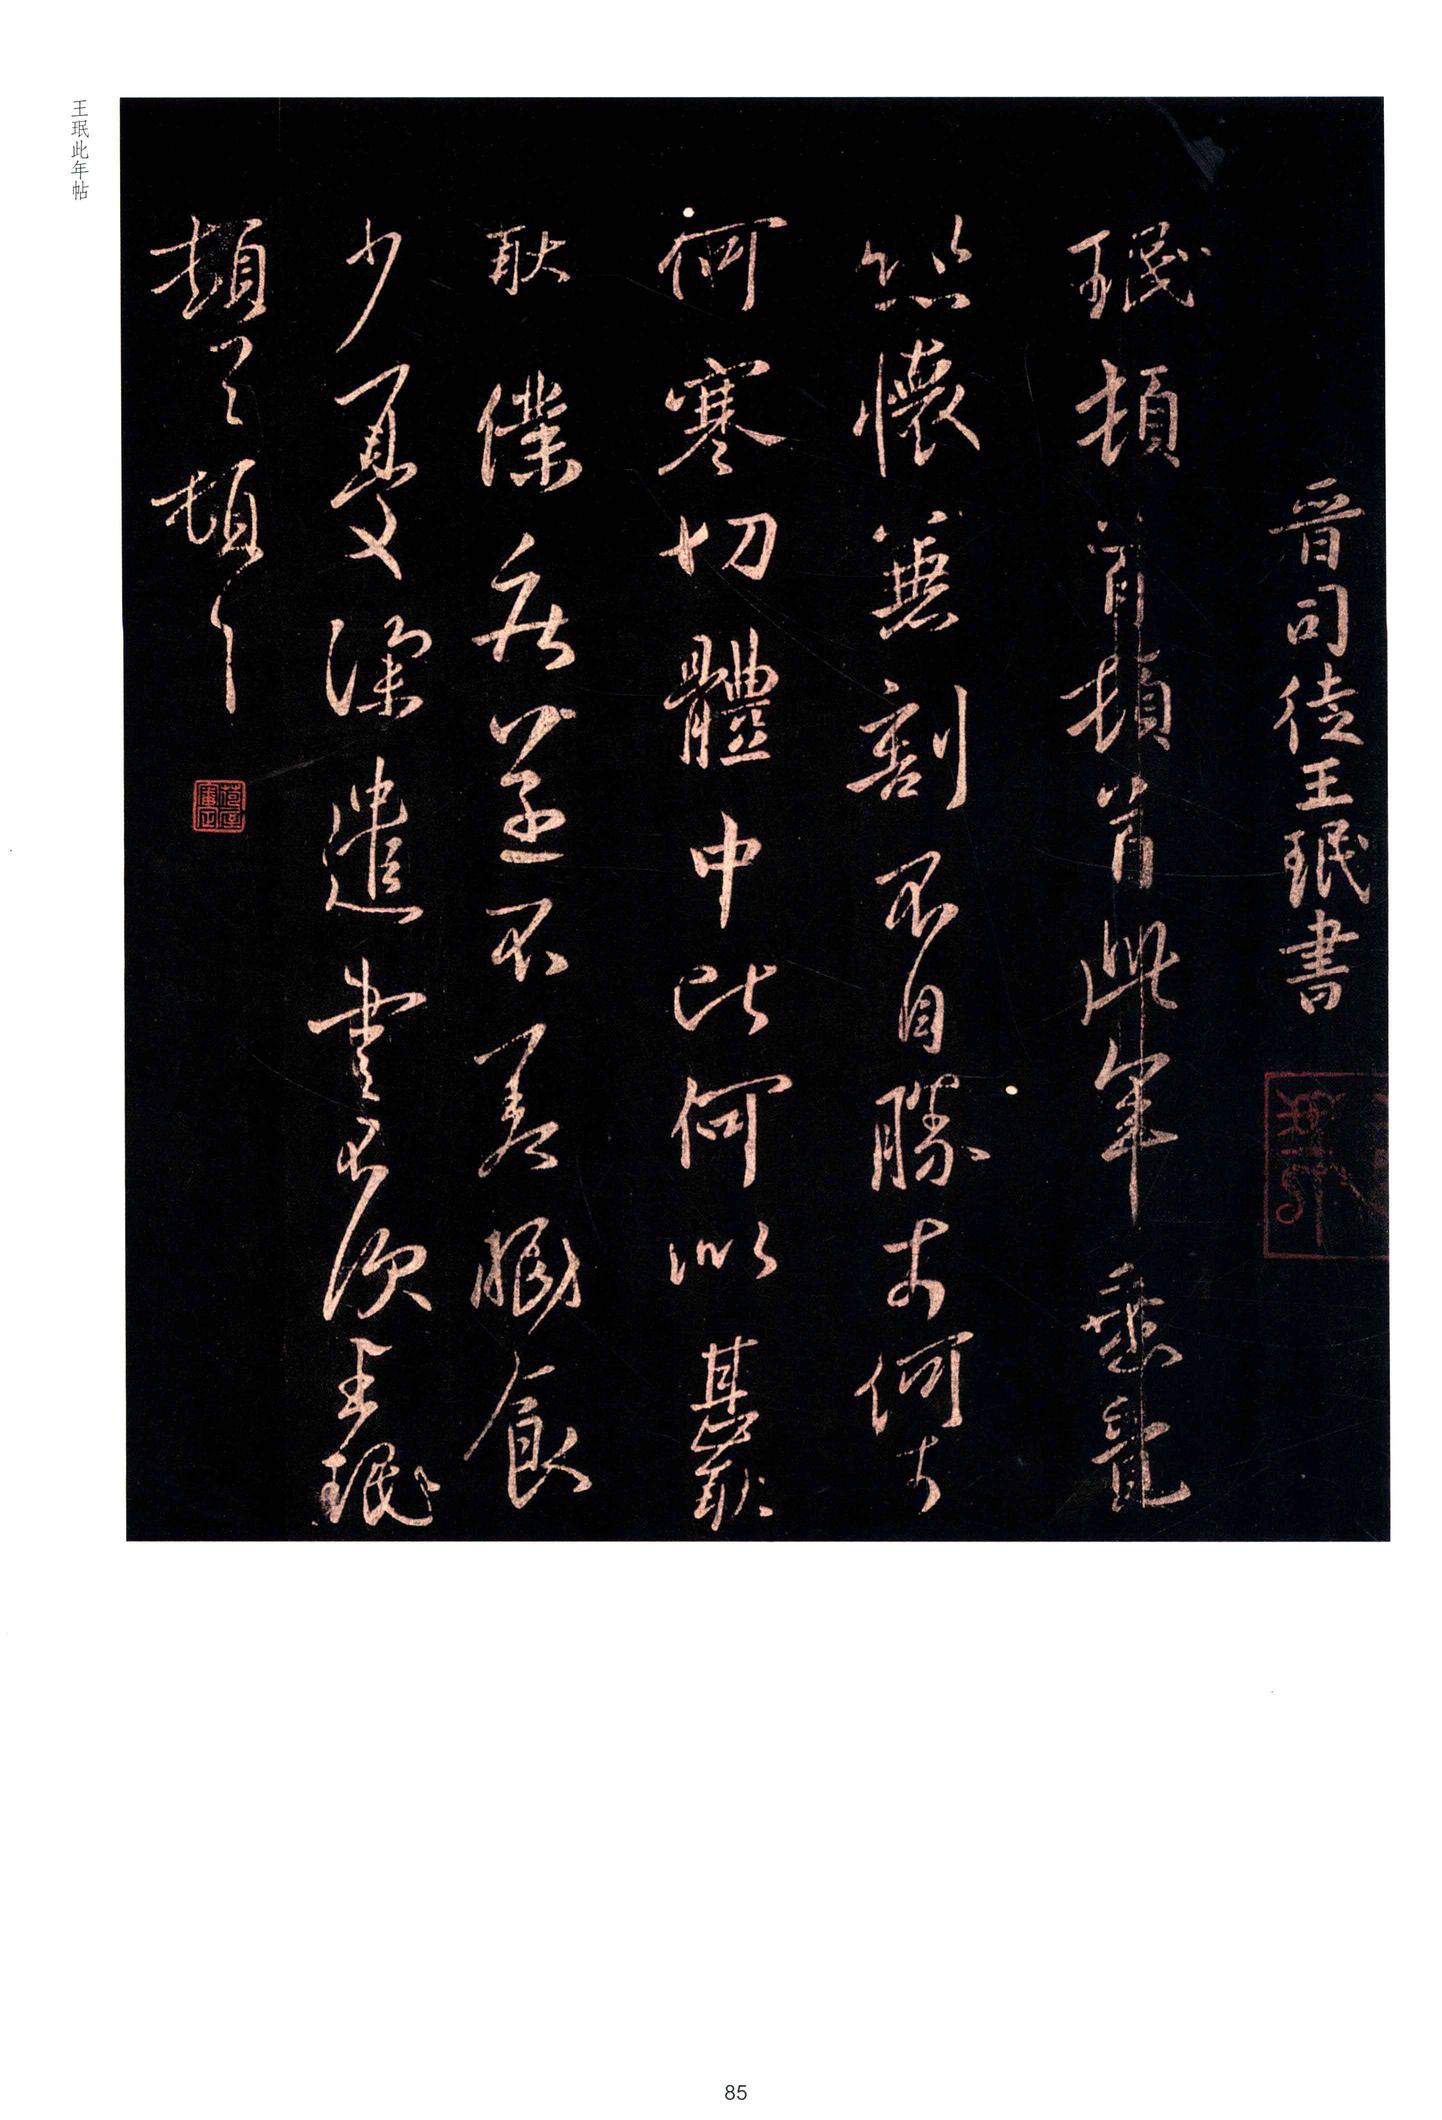 晋司徒王珉書
珉頓首頓首此年垂竟
悲懷兼割不自勝奈何奈
何寒切體中比何似甚耿
耿僕疾不差眠食
少憂深遣書不次王珉
頓首頓首
王珉此年帖
85